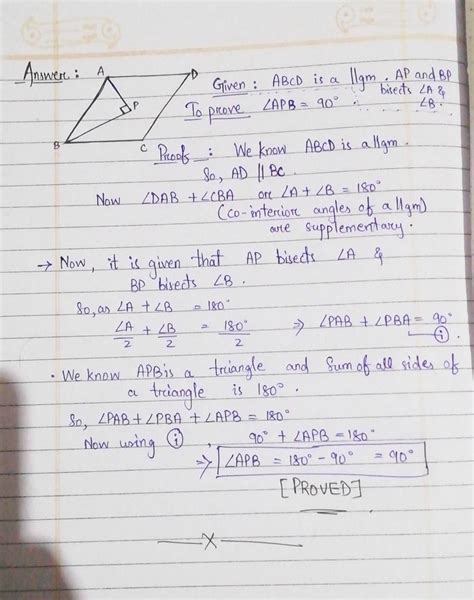 Answer :
A
D
P
B
C
Given : ABCD is a ||gm . AP and BP
bisects ∠A &
∠B.
To prove ∠APB = 90°
Proof : We know ABCD is a ||gm.
So, AD || BC
Now ∠DAB + ∠CBA or ∠A + ∠B = 180°
(co-interior angles of a ||gm)
are supplementary.
→ Now, it is given that AP bisects ∠A &
BP bisects ∠B.
So, as ∠A + ∠B = 180°
∠A/2 + ∠B/2 = 180°/2 ⇒ ∠PAB + ∠PBA = 90° — (i)
• We know APB is a triangle and Sum of all sides of
a triangle is 180°.
So, ∠PAB + ∠PBA + ∠APB = 180°
Now using (i), 90° + ∠APB = 180°
⇒ ∠APB = 180° - 90° = 90°
[PROVED]
—x—